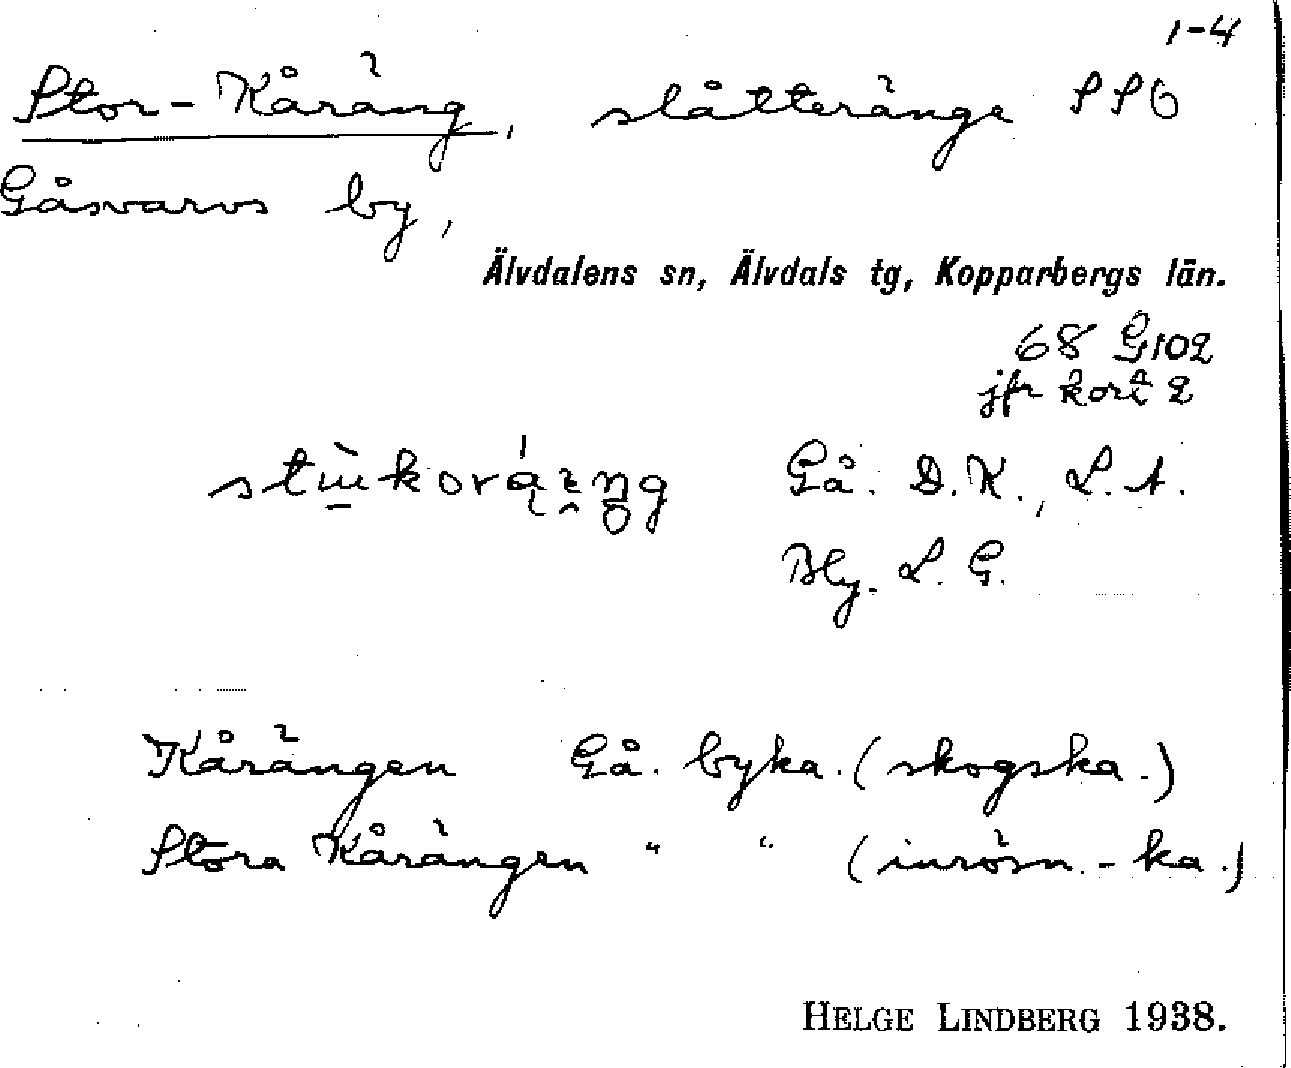 1-4
Stor-Kåräng, slåtteränge SSÖ
Gåsvarvs by,
Älvdalens sn, Älvdals tg, Kopparbergs län.
68 G102
jfr kort 2
Gå. D.K., L.A.
Bly. L. G.
Kårängen Gå. byka. (skogska.)
Stora Kårängen " " (inrösn.-ka.)
HELGE LINDBERG 1938.